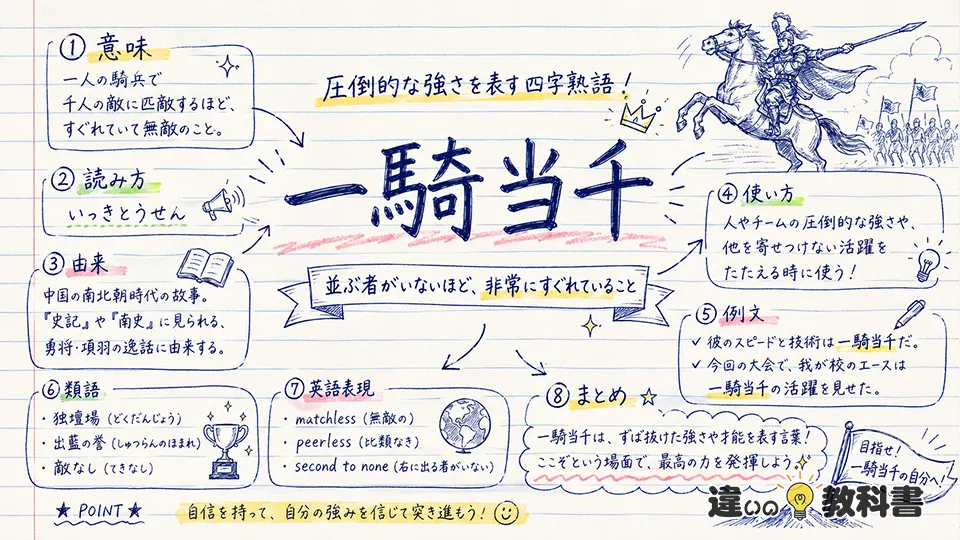 圧倒的な強さを表す四字熟語！
一騎当千
並ぶ者がいないほど、非常にすぐれていること
① 意味
一人の騎兵で
千人の敵に匹敵するほど、
すぐれていて無敵のこと。
② 読み方
いっきとうせん
③ 由来
中国の南北朝時代の故事。
『史記』や『南史』に見られる、
勇将・項羽の逸話に由来する。
④ 使い方
人やチームの圧倒的な強さや、
他を寄せつけない活躍を
たたえる時に使う！
⑤ 例文
✓ 彼のスピードと技術は一騎当千だ。
✓ 今回の大会で、我が校のエースは
一騎当千の活躍を見せた。
⑥ 類語
・独壇場（どくだんじょう）
・出藍の誉（しゅつらんのほまれ）
・敵なし（てきなし）
⑦ 英語表現
・matchless（無敵の）
・peerless（比類なき）
・second to none（右に出る者がいない）
⑧ まとめ ☆
一騎当千は、ずば抜けた強さや才能を表す言葉！
ここぞという場面で、最高の力を発揮しよう
目指せ！
一騎当千の自分へ！
★ POINT ★
自信を持って、自分の強みを信じて突き進もう！
違いの教科書